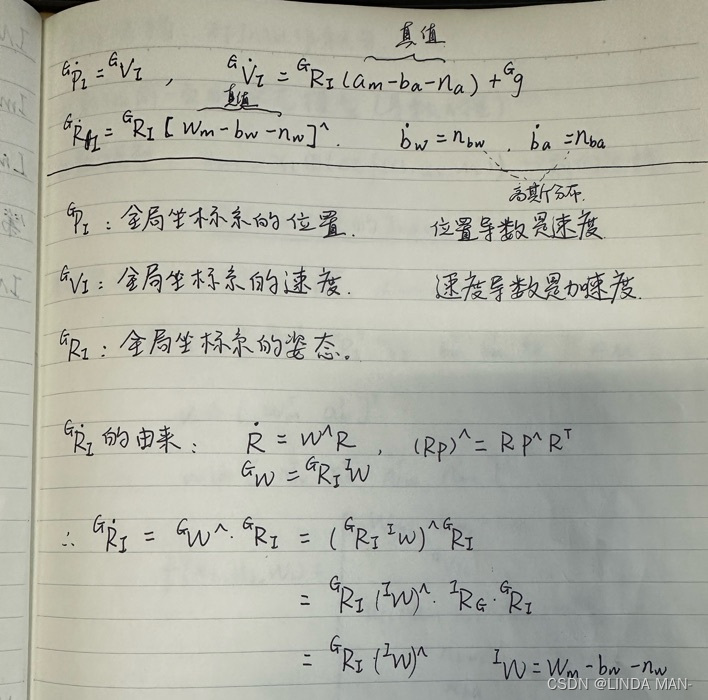 真值
ᴳṗ_I = ᴳV_I , ᴳV̇_I = ᴳR_I (a_m - b_a - n_a) + ᴳg
真值
ᴳṘ_I = ᴳR_I [ w_m - b_w - n_w ]^. ḃ_w = n_bw . ḃ_a = n_ba
高斯分布.
ᴳP_I : 全局坐标系的位置. 位置导数是速度
ᴳV_I : 全局坐标系的速度. 速度导数是加速度.
ᴳR_I : 全局坐标系的姿态。
ᴳṘ_I 的由来: Ṙ = w^R , (Rp)^ = R p^ Rᵀ
ᴳw = ᴳR_I ᴵw
∴ ᴳṘ_I = ᴳw^ · ᴳR_I = (ᴳR_I ᴵw)^ ᴳR_I
= ᴳR_I (ᴵw)^ · ᴵR_G · ᴳR_I
= ᴳR_I (ᴵw)^ ᴵw = w_m - b_w - n_w
CSDN @LINDA MAN-